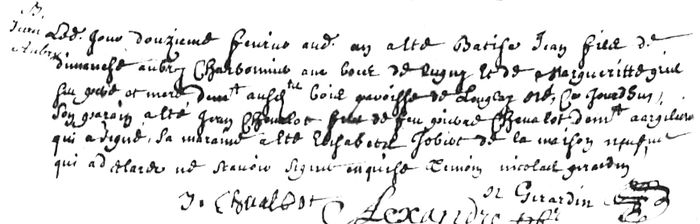 B.
Jean
Aubry
Led. Jour douzieme feurier aud. an a Esté Batisé Jean fils de
dimanche aubry Charbonnier au bois de Lugny et de Margueritte
ses pere et mere demt audit bois paroisse de né Ce Jourd'huy
Son parain a esté Jean Chevalot fils de feu pierre Chevalot demt
qui a signé, Sa maraine a esté Elisabeth Jobiot de la maison neufue
qui a declaré ne scauoir signer enquise Temoin nicolas girardin
J. Chevallot N Girardin
Alexandre